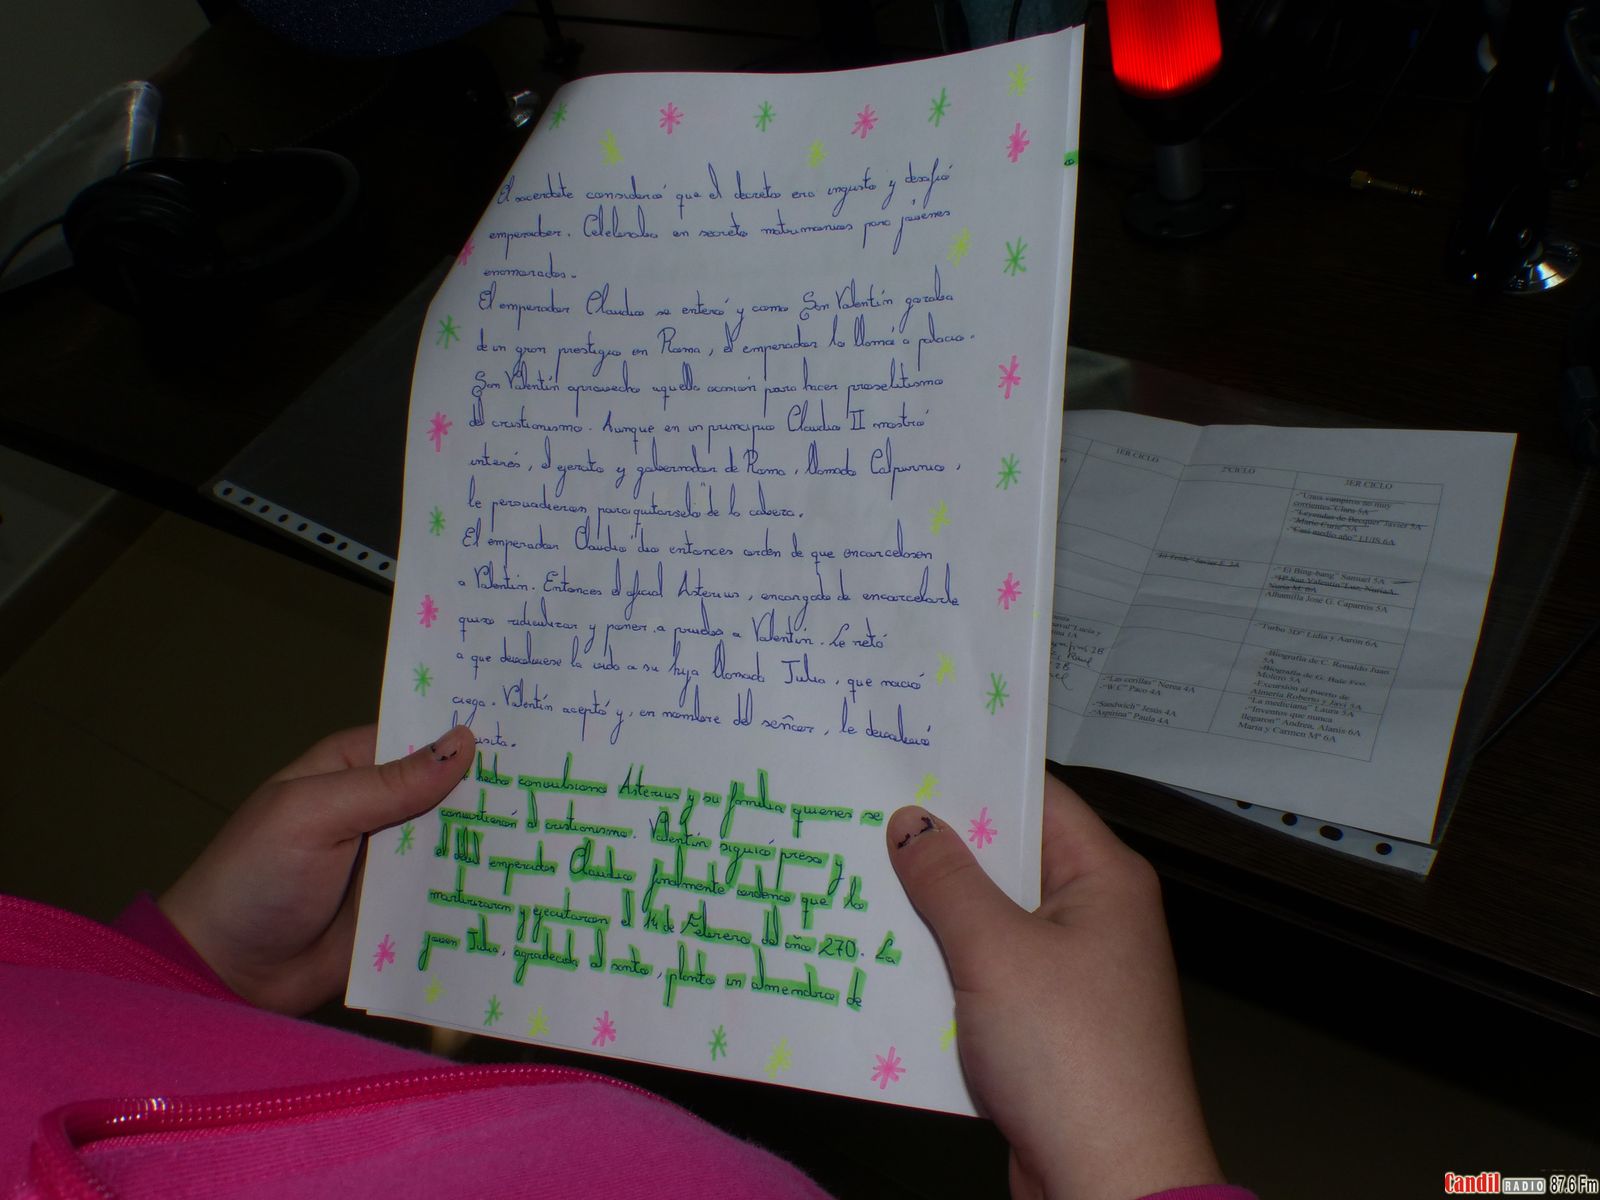 El sacerdote consideró que el decreto era ingusto y desafió
emperador. Celebraba en secreto matrimonios para jóvenes
enamorados.
El emperador Claudio se enteró y como San Valentín gozaba
de un gran prestigio en Roma, el emperador lo llamó a palacio.
San Valentín aprovecho aquella ocasión para hacer proselitismo
del cristianismo. Aunque en un principio Claudio II mostró
interés, el ejercito y gobernador de Roma, llamado Calpurnio,
le persuadieron para quitarselo de la cabeza.
El emperador Claudio dio entonces orden de que encarcelasen
a Valentín. Entonces el oficial Asterius, encargado de encarcelarle
quiso ridiculizar y poner a prueba a Valentín. Le retó
a que devolviese la vida a su hija llamada Julia, que nació
ciega. Valentín aceptó y, en nombre del señor, le devolvió
hecho convulsiono Asterius y su familia quienes se
convirtieron al cristianismo. Valentín siguió preso y
el emperador Claudio finalmente ordeno que lo
martirizaran y ejecutaran el 14 de Febrero del año 270. La
joven Julia, agradecida al santo, planto un almendro de
1ER CICLO
2ºCICLO
3ER CICLO
-"Unos vampiros no muy
corrientes" Clara 5A
-"Leyendas de Becquer" Javier 5A
-"Marie Curie" 5A
-"Casi medio año" LUIS 6A
-" El Bing-bang" Samuel 5A
-"Hª San Valentín" Luz, Nuria A.
Nuria M. 6A
Alhamilla José G. Caparrós 5A
-"Turbo 3D" Lidia y Aarón 6A
-Biografía de C. Ronaldo Juan
5A
-Biografía de G. Bale Fco.
Molero 5A
-Excursión al puerto de
Almería Roberto y Javi 5A
-"La medicina" Laura 5A
-"Inventos que nunca
llegaron" Andrea, Alanis 6A
María y Carmen Mª 6A
-"Las conillas" Nerea 4A
-"W C" Paco 4A
-"Sandwich" Jesús 4A
-"Aspirina" Paula 4A
Candil RADIO 87.6 Fm